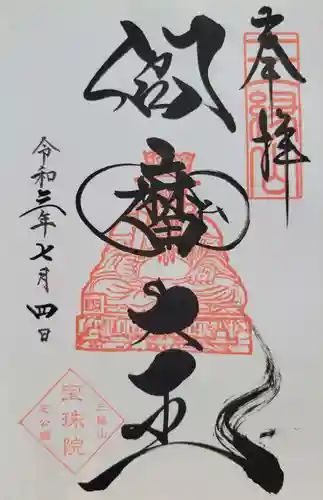 奉拝
閻魔大王
令和三年七月四日
三縁山
宝珠院
芝公園